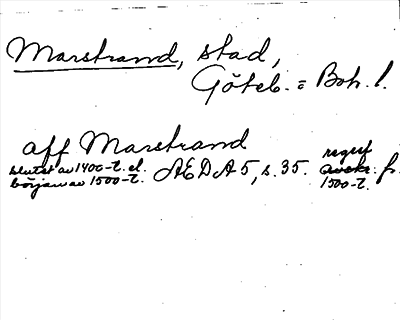 Marstrand, stad,
Göteb. = Boh. l.
aff Marstrand
slutet av 1400-t. el. början av 1500-t. AEDA 5, s. 35. regist avskr. fr. 1500-t.